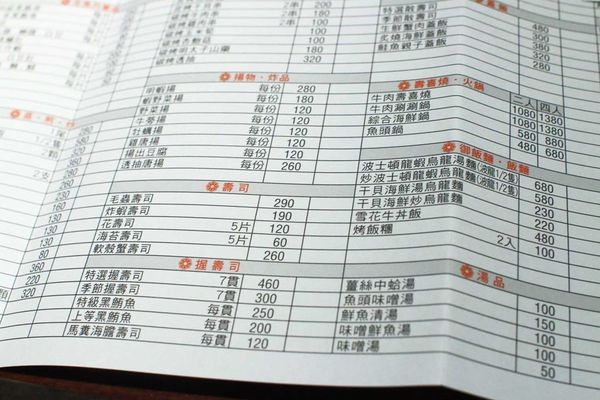 碳烤明太子山藥
碳烤透抽
特選散蓋飯
季節散蓋飯
生鮮蟹肉蓋飯
炙燒海鮮蓋飯
鮭魚親子蓋飯
480
300
380
320
280
揚物·炸品
明蝦揚 每份 280
蝦野菜揚 每份 180
野菜揚 每份 120
牛蒡揚 每份 100
牡蠣揚 每份 120
雞唐揚 每份 120
揚出豆腐 每份 120
透抽唐揚 每份 260
壽喜燒·火鍋
二人 四人
牛肉壽喜燒 1080 1380
牛肉涮涮鍋 1080 1380
綜合海鮮鍋 580 880
魚頭鍋 480 680
御飯麵·飯糰
波士頓龍蝦烏龍湯麵(波龍1/2隻) 680
炒波士頓龍蝦烏龍麵(波龍1/2隻) 580
干貝海鮮湯烏龍麵 230
干貝海鮮炒烏龍麵 220
雪花牛丼飯 480
烤飯糰 2入 100
壽司
毛蟲壽司 290
炸蝦壽司 190
花壽司 5片 120
海苔壽司 5片 60
軟殼蟹壽司 260
握壽司
特選握壽司 7貫 460
季節握壽司 7貫 300
特級黑鮪魚 每貫 250
上等黑鮪魚 每貫 200
馬糞海膽壽司 每貫 120
湯品
薑絲中蛤湯 100
魚頭味噌湯 150
鮮魚清湯 100
味噌鮮魚湯 100
味噌湯 50